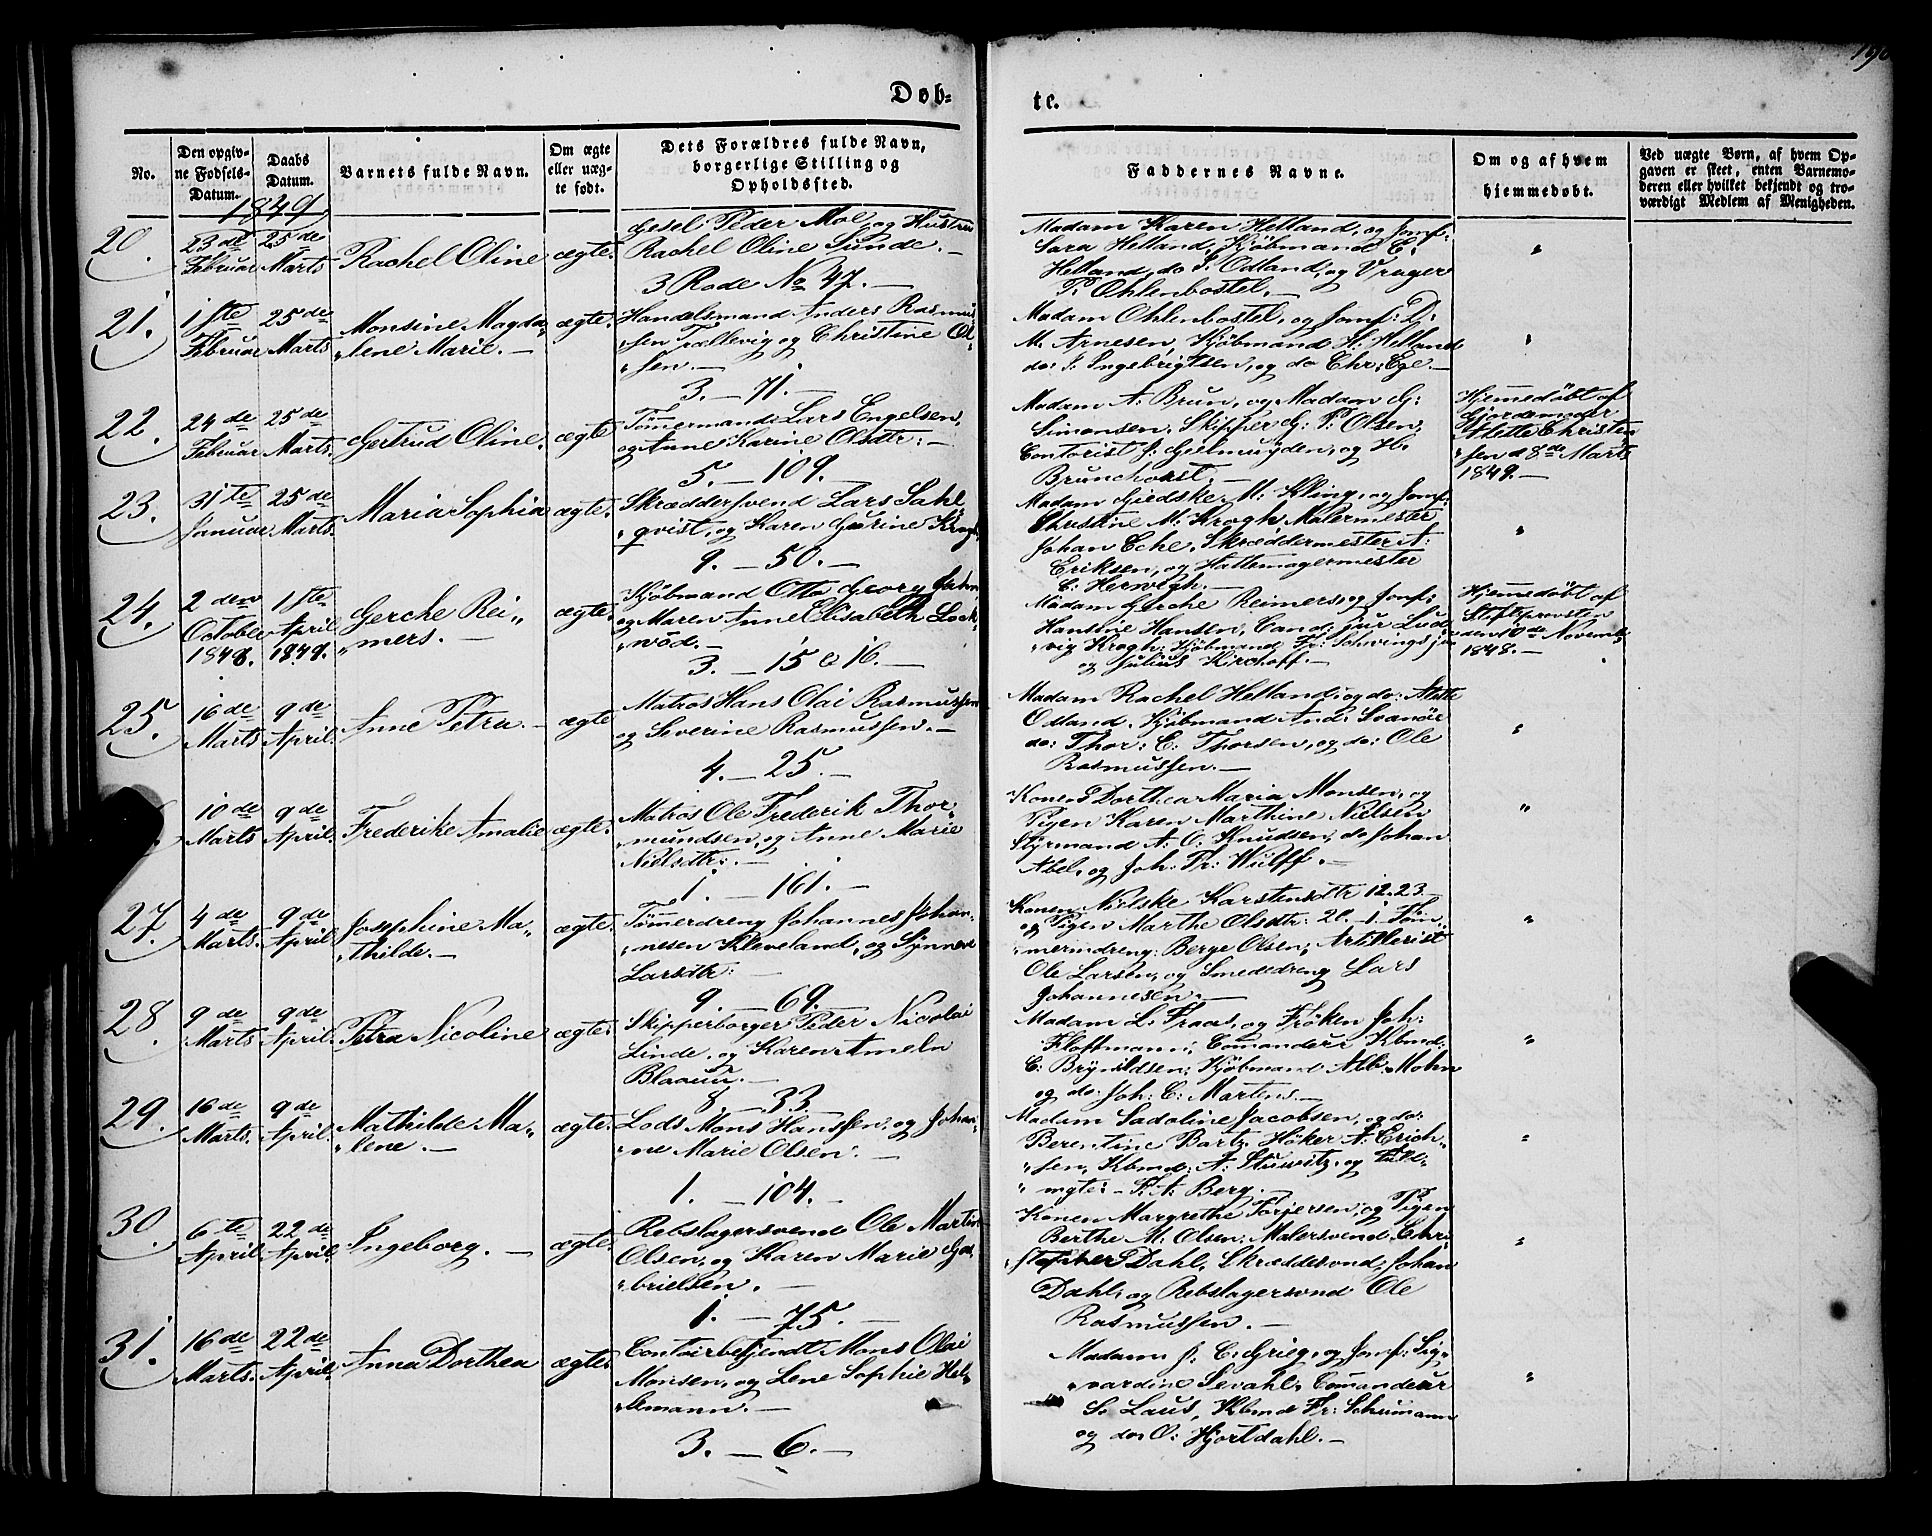 190
Døb-
te.
No.
Den opgiv-
ne Fødsels-
Datum.
Daabs
Datum.
Barnets fulde Navn.
Om ægte
eller uæg-
te født.
Dets Forældres fulde Navn,
borgerlige Stilling og
Opholdssted.
Faddernes Navne.
Om og af hvem
hjemmedøbt.
Ved uægte Børn, af hvem Op-
gaven er skeet, enten Barnemo-
deren eller hvilket bekjendt og tro-
værdigt Medlem af Menigheden.
1849
20.
23de
Februar
25de
Marts
Rachel Oline
ægte.
Gesel Peder Moe, og Hustru
Rachel Oline Sunde.—
3 Rode No 47.—
Madam Karen Helland, og Jomf:
Sara Helland, Kjöbmand C:
Helland, do J. Odland, og Vrager
P. Ohlenbostel.—
"
21.
1ste
Februar
25de
Marts
Monsine Magda„
„lene Marie.—
ægte.
Handelsmand Anders Rasmus
„sen Trættevig og Christine Ol„
„sen.—
3.—71.—
Madam Ohlenbostel, og Jomf: D:
M. Arnesen, Kjöbmand H: Helland
do: J. Ingebrigtsen, og do Chr: Ege.—
"
22.
24de
Februar
25de
Marts.
Gertrud Oline.
ægte
Tömmermand Lars Engelsen,
og Anne Karine Olsdtr:—
5.—109.—
Madam A: Brun, og Madam G:
Simonsen, Skipper G: P. Olsen,
Contorist J: Geelmuyden, og H:
Brunchorst.—
Hjemedöbt af
Gjordemoder
Mette Christen
„sen d 8de Marts
1849.—
23.
31te
Januar
25de
Marts.
Maria Sophia
ægte.
Skræddersvend Lars Sahl„
„qvist, og Karen Gurine Krogh
9.—50.—
Madam Giedske M. Kling, og Jomf:
Christine M: Krogh, Malermester
Johan Eche, Skræddermester A:
Eriksen, og Hattemagermester
C: Herwegh.—
"
24.
2den
October
1848.
1ste
April
1849.
Gerche Rei„
„mers.—
ægte.
Kjöbmand Otto Georg Jahn
og Maren Anne Elisabeth Lock„
„wod.—
3.—15 & 16.—
Madam Gerche Reimers, og Jomf:
Hansine Hansen, Cand: jur Lud„
„vig Krogh, Kjöbmand Fr: Schwings jun
og Julius Kirchoff.—
Hjemedöbt af
Stiftsprovsten
den 10de Novemb:
1848.—
25.
16de
Marts
9de
April.
Anne Petra.—
ægte
Matros Hans Olai Rasmussen
og Severine Rasmussen.—
4.—25.—
Madam Rachel Helland, og do: Mette
Odland, Kjöbmand And: Svanöe
do: Thor: C: Thorsen, og do: Ole
Rasmussen.—
"
10de
Marts
9de
April.
Frederike Amalie
ægte.
Matros Ole Frederik Thor„
mundsen, og Anne Marie
Nielsdtr:.—
1.—161.—
Konen Dorthea Maria Monsen, og
Pigen Karen Marthine Nielsen
Styrmand A: O: Knudsen, do Johan
Abel, og Joh: Fr: Wulff.—
"
27.
4de
Marts.
9de
April
Josephine Ma„
„thilde.—
ægte.
Tömmerdreng Johannes Johan„
„nesen Kleveland, og Synneve
Larsdtr:—
9.—69.—
Konen Nielske Karstensdtr 12.23.—
og Pigen Marthe Olsdtr: 20.—1. Töm„
„merindreng Berge Olsen, Artillerist
Ole Larsen, og Smededreng Lars
Johannesen.—
"
28.
9de
Marts
9de
April.
Petra Nicoline
ægte.
Skipperborger Peder Nicolai
Linde, og Karen Ameln
Blaauw.—
8—33.—
Madam L. Fraas, og Fröken Joh:
Flottmann, Comandeur Kbmd:
C: Brynildsen, Kjöbmand Alb: Mohn
og do: Joh: C: Martens.—
"
29.
16de
Marts.
9de
April.
Mathilde Ma„
„lene.—
ægte.
Lods Mons Hanssen, og Johan„
„ne Marie Olsen.—
1.—104.—
Madam Sadoline Jacobsen, og do:
Berentine Bartz, Höker A: Erich„
„sen, Kbmd: A: Stuwitz, og Fuld„
„mgt:—F. A: Berg.—
"
30.
6te
April.
22de
April.
Ingeborg.—
ægte.
Rebslagersvend Ole Martin
Olsen, og Karen Marie Ga„
„brielsen.—
1.—75.—
Konen Margrethe Torjersen, og Pigen
Berthe M: Olsen, Malersvend Chri„
„stopher Dahl, Skræddersvnd: Johan
Dahl, og Rebslagersvnd Ole
Rasmussen.—
"
31.
16de
Marts.
22de
April.
Anna Dorthea
ægte.
Contoirbetjendt Mons Olai
Monsen, og Lene Sophie Hel„
„lemann.—
3.—6.—
Madam J. C: Grieg, og Jomf: Sig„
„vardine Sevahl, Comandeur
S: Laus, Kbmd Fr: Schumann
og do: O: Hjortdahl.—
"